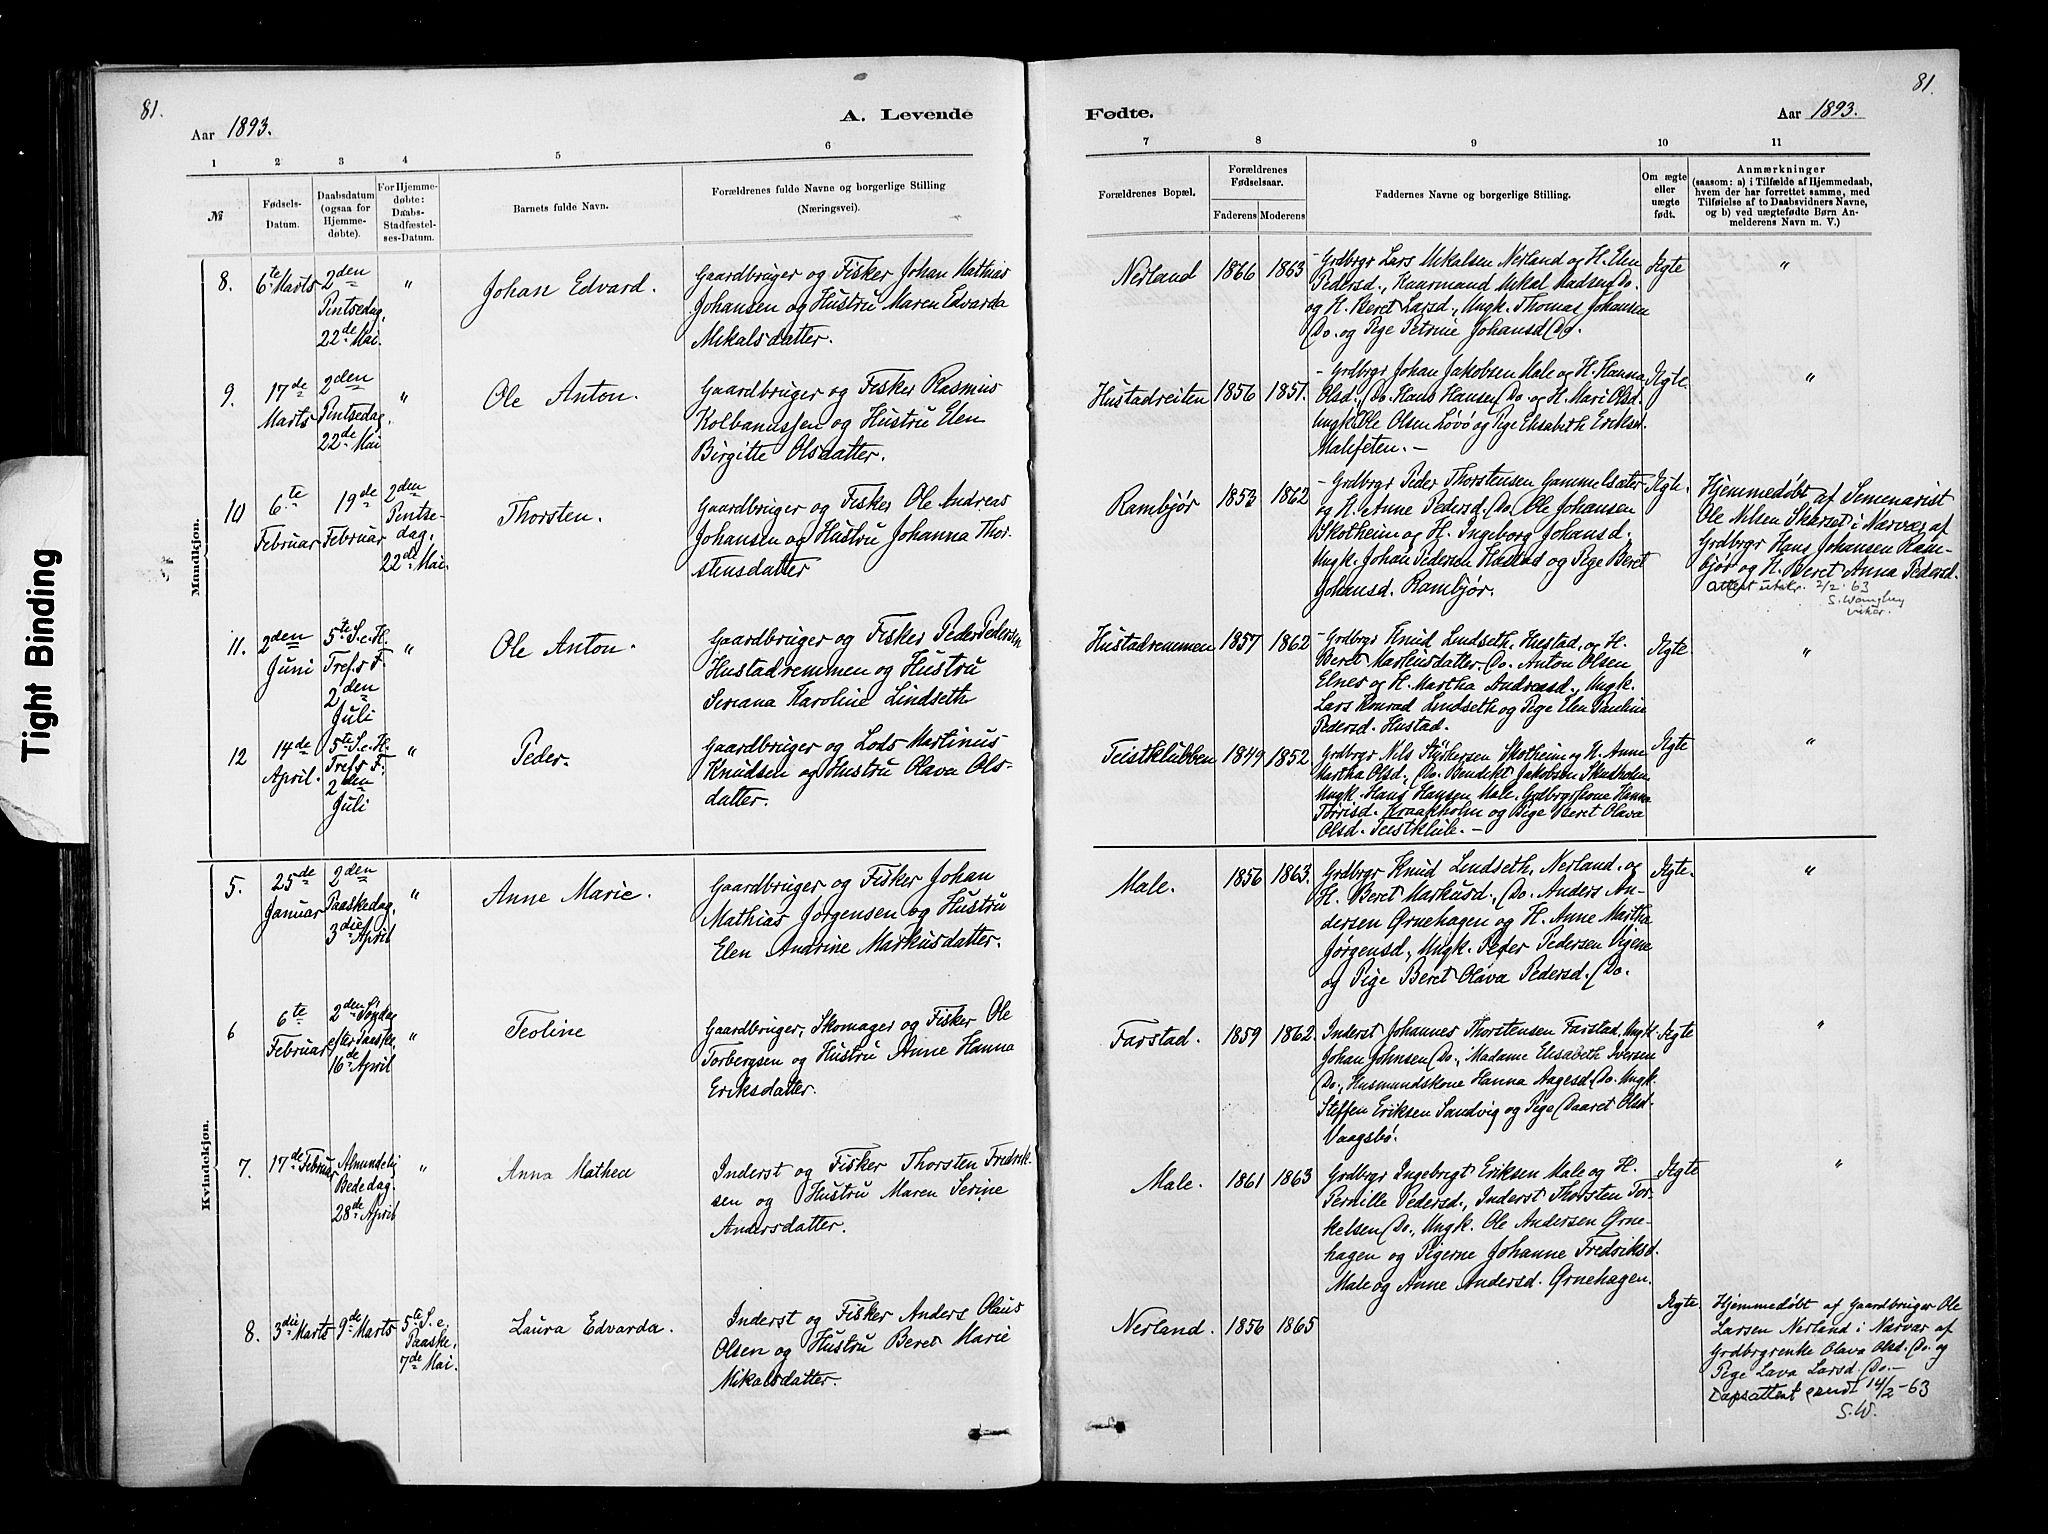 81.
Aar 1893.
A. Levende
Fødte.
Aar 1893.
81.
Tight Binding
1 2 3 4 5 6
7 8 9 10 11
№
Fødsels-
Datum.
Daabsdatum
(ogsaa for
Hjemme-
døbte).
For Hjemme-
døbte:
Daabs-
Stadfæstel-
ses-Datum.
Barnets fulde Navn.
Forældrenes fulde Navne og borgerlige Stilling
(Næringsvei).
Forældrenes Bopæl.
Forældrenes
Fødselsaar.
Faderens Moderens
Faddernes Navne og borgerlige Stilling.
Om ægte
eller
uægte
født.
Anmærkninger
(saasom: a) i Tilfælde af Hjemmedaab,
hvem der har forrettet samme, med
Tilføielse af to Daabsvidners Navne,
og b) ved uægtefødte Børn An-
melderens Navn m. V.)
Mandkjøn.
8.
6te Marts
2den
Pintsedag,
22de Mai.
"
Johan Edvard.
Gaardbruger og Fisker Johan Mathias
Johansen og Hustru Maren Edvarda
Mikalsdatter.
Nerland
1866 1863
- Grdbrgr Lars Mikalsen Nerland og H. Elen
Pedersd., Kaarmand Mikal Madsen Do.
og H. Beret Larsd., Ungk. Thomas Johansen
Do. og Pige Petrine Johansd. Do.
Ægte
"
9.
17de
Marts
2den
Pintsedag,
22de Mai
"
Ole Anton.
Gaardbruger og Fisker Rasmus
Kolbanussen og Hustru Elen
Birgitte Olsdatter.
Hustadreiten
1856 1851.
- Grdbrgr Johan Jakobsen Male og H. Hanna
Olsd., Do. Hans Hansen Do. og H. Mari Olsd.
Ungk. Ole Olsen Løvø og Pige Elisabeth Eriksd.
Malefeten. -
Ægte.
"
10
6te
Februar
19de
Februar
2den
Pintse-
dag,
22de Mai.
Thorsten.
Gaardbruger og Fisker Ole Andreas
Johansen og Hustru Johanna Thor-
stensdatter
Rambjør
1853 1862
- Grdbrgr Peder Thorstensen Gammelsæter
og H. Anne Pedersd., Do. Ole Johansen
Skotheim og H. Ingeborg Johansd.
Ungk. Johan Pedersen Hustad og Pige Beret
Johansd. Rambjør.
Ægte.
Hjemmedøbt af Semenarist
Ole Nilsen Skarset i Nærvær af
Grdbrgr Hans Johansen Ram-
bjør og H. Beret Anna Pedersd.
Attest utskr. 2/2-63
vikar.
11.
2den
Juni
5te S. e. H.
Tref.s F.
2den
Juli
"
Ole Anton.
Gaardbruger og Fisker Peder Pedersen
Hustadremmen og Hustru
Seriana Karoline Lindseth
Hustadremmen
1857 1862
- Grdbrgr Knud Lindseth, Hustad, og H.
Beret Markusdatter, Do. Anton Olsen
Elnes og H. Martha Andreasd., Ungk.
Lars Konrad Lindseth og Pige Elen Pauline
Pedersd. Hustad.
Ægte
"
12
14de
April.
5te S. e. H.
Tref.s F.
2den
Juli
"
Peder.
Gaardbruger og Lods Martinus
Knudsen og Hustru Olava Ols-
datter.
Teistklubben
1849 1852
Grdbrgr Nils Styrkersen Skotheim og H. Anne
Martha Olsd., Do. Bendikt Jakobsen Skudholm
Ungk. Hans Hansen Male, Grdbrgrskone Hanna
Torrisd. Kraakholm og Pige Beret Olava
Olsd. Teistklub. -
Ægte
"
Kvindekjøn.
5.
25de
Januar
2den
Paaskedag,
3die April
"
Anne Marie.
Gaardbruger og Fisker Johan
Mathias Jørgensen og Hustru
Elen Andrine Markusdatter.
Male.
1856 1863.
Grdbrgr Knud Lindseth, Nerland, og
H. Beret Markusd., Do. Anders An-
dersen Ørnehagen og H. Anne Martha
Jørgensd., Ungk. Peder Pedersen Vigene
og Pige Beret Olava Pedersd. Do.
Ægte.
"
6
6te
Februar
2den Søndag
efter Paaske
16de April
"
Teoline
Gaardbruger, Skomager og Fisker Ole
Torbergsen og Hustru Anne Hanna
Eriksdatter.
Farstad.
1859 1862.
Inderst Johannes Thorstensen Farstad, Ungk.
Johan Johnsen Do., Madame Elisabeth Iversen
Do., Husmandskone Hanna Aagesd. Do. Ungk.
Steffen Eriksen Sandvig og Pige Daaret Olsd.
Vaagsbø.
Ægte
"
7.
17de Februar
Almindelig
Bededag.
28de April
"
Anna Mathea
Inderst og Fisker Thorsten Fredrik-
sen og Hustru Maren Serine
Andersdatter.
Male.
1861 1863
Grdbrgr Ingebrigt Eriksen Male og H.
Pernille Pedersd., Inderst Thorsten Tor-
kelsen Do., Ungk. Ole Andersen Ørne-
hagen og Pigerne Johanne Fredriksd.
Male og Anne Andersd. Ørnehagen.
Ægte
"
8.
3die Marts
9de Marts
5te S. e.
Paaske,
7de Mai.
Laura Edvarda.
Inderst og Fisker Anders Olaus
Olsen og Hustru Beret Marie
Mikalsdatter.
Nerland.
1856 1865
Ægte
Hjemmedøbt af Gaardbruger Ole
Larsen Nerland i Nærvær af
Grdbrgrenke Olava Olsd. Do. og
Pige Lava Larsd. Do.-
Dåpsattest sendt 14/2-63
S.W.